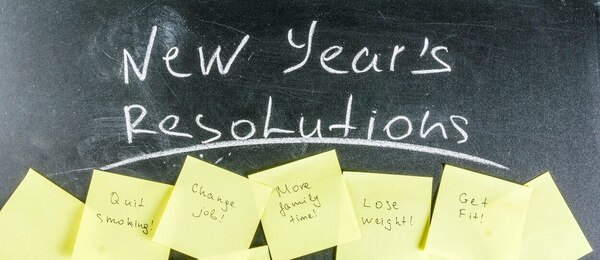 New Year's
Resolutions
Quit
smoking!
Change
job!
More
family
time!
Lose
weight!
Get
Fit!